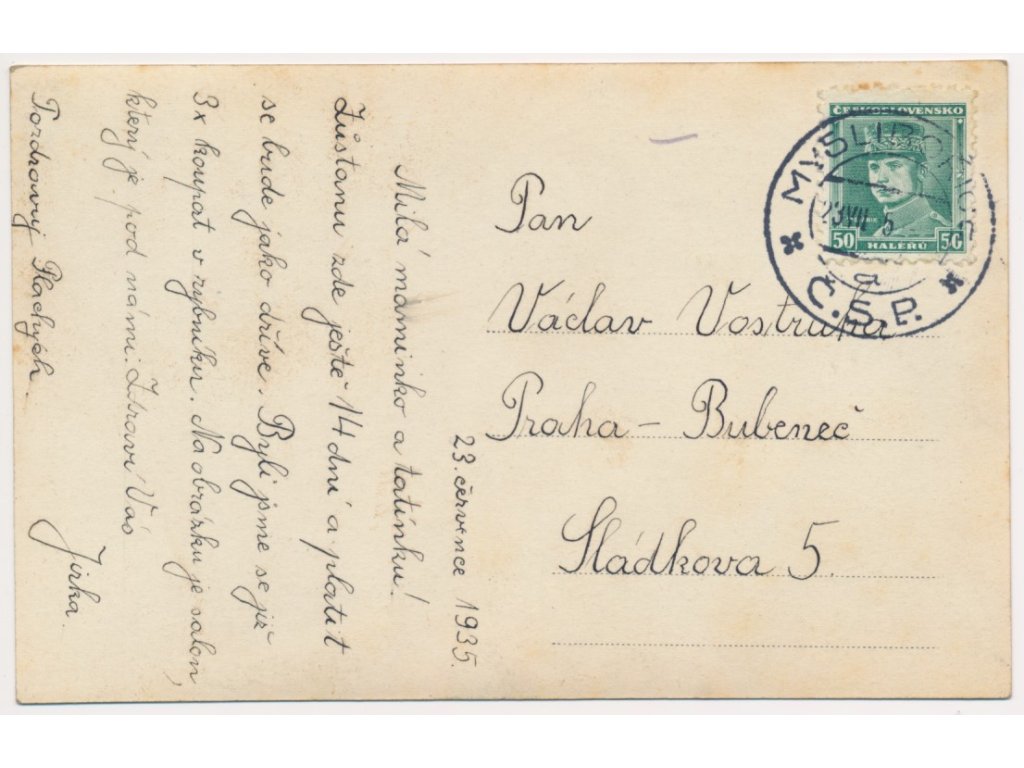 23. července 1935.
Milá máminko a tatínku!
Zůstanu zde ještě 14 dní a platit
se bude jako dříve. Byli jsme se již
3x koupat v rybníku. Na obrázku je salon,
který je pod námi. Zdraví Vás
Jirka.
Pozdravuj Plachých.
Pan
Václav Vostruha
Praha – Bubeneč
Sládkova 5.
ČESKOSLOVENSKO
50 HALÉŘŮ 50
23 VII 5
a
Č.S.P.